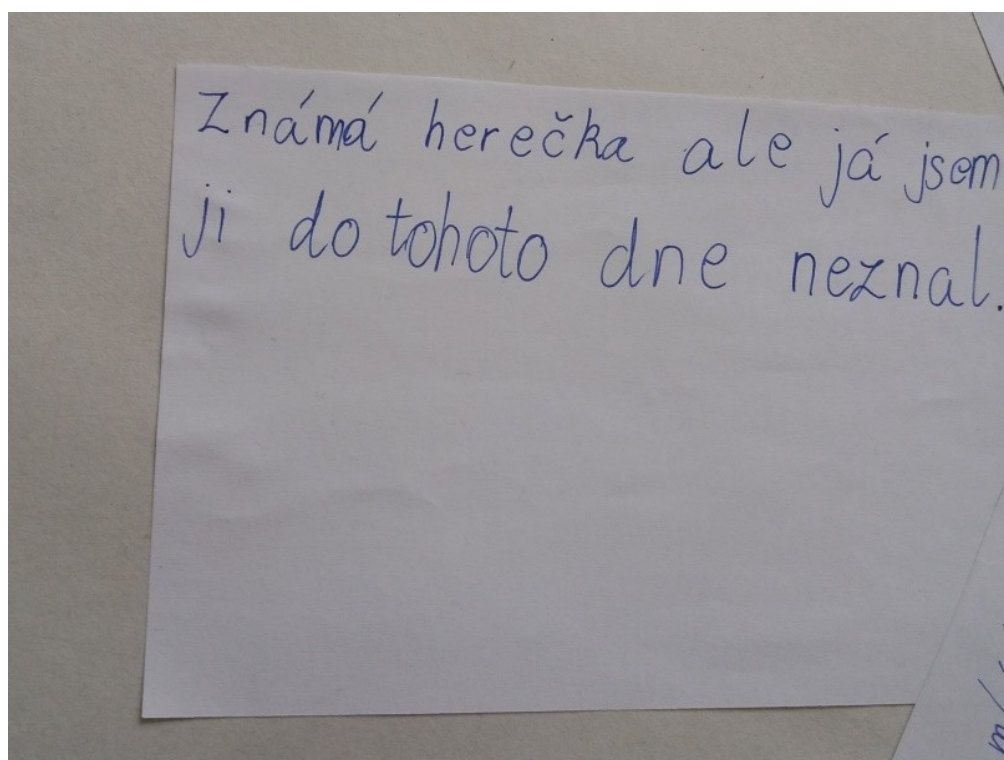 Známá herečka ale já jsem
ji do tohoto dne neznal.